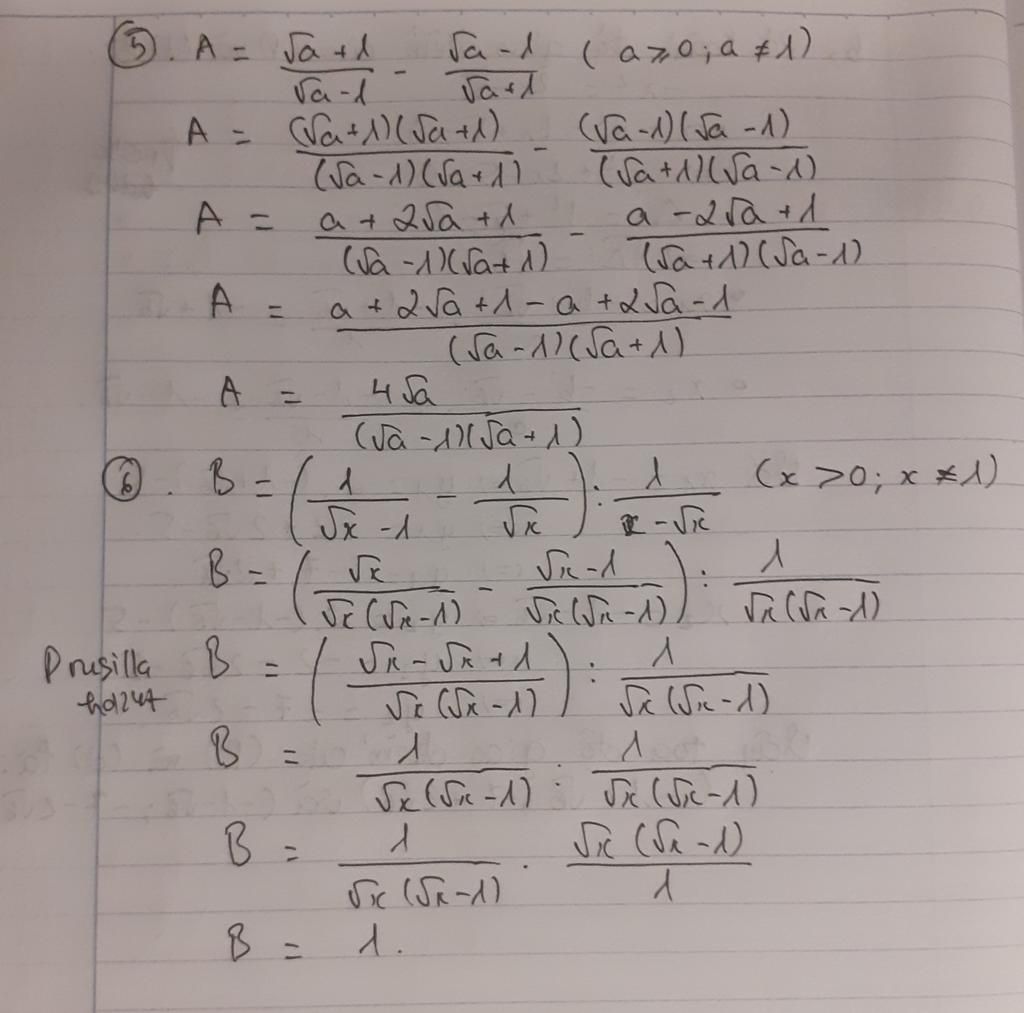 ⑤. A = (√a + 1)/(√a - 1) - (√a - 1)/(√a + 1) (a ≥ 0; a ≠ 1)
A = (√a + 1)(√a + 1)/(√a - 1)(√a + 1) - (√a - 1)(√a - 1)/(√a + 1)(√a - 1)
A = (a + 2√a + 1)/(√a - 1)(√a + 1) - (a - 2√a + 1)/(√a + 1)(√a - 1)
A = (a + 2√a + 1 - a + 2√a - 1)/(√a - 1)(√a + 1)
A = 4√a/(√a - 1)(√a + 1)
⑥. B = (1/(√x - 1) - 1/√x) : 1/(x - √x) (x > 0; x ≠ 1)
B = (√x/√x(√x - 1) - (√x - 1)/√x(√x - 1)) : 1/√x(√x - 1)
Drusilla
B = ((√x - √x + 1)/√x(√x - 1)) : 1/√x(√x - 1)
B = 1/√x(√x - 1) : 1/√x(√x - 1)
B = 1/√x(√x - 1) . √x(√x - 1)/1
B = 1.